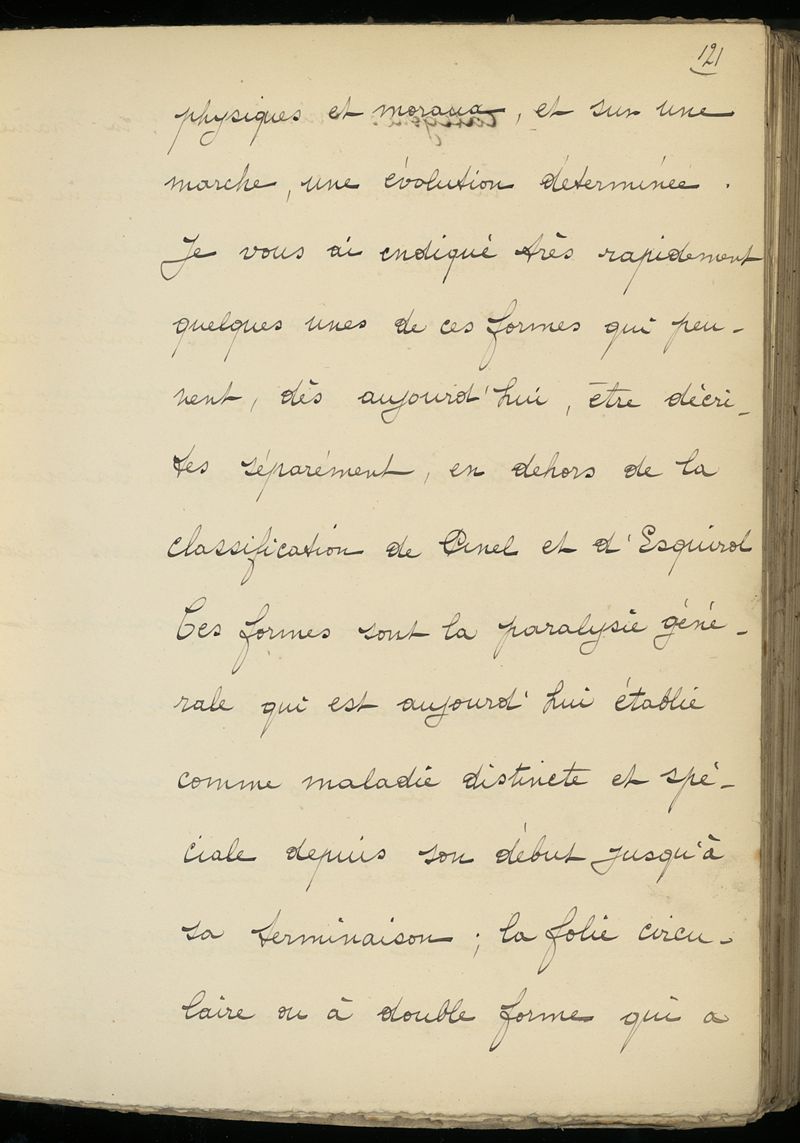 121
physiques et moraux, et sur une
marche, une évolution déterminée.
Je vous ai indiqué très rapidement
quelques unes de ces formes qui peu-
vent, dès aujourd'hui, être décri-
tes séparément, en dehors de la
classification de Pinel et d'Esquirol
Ces formes sont la paralysie géné-
rale qui est aujourd'hui établie
comme maladie distincte et spé-
ciale depuis son début jusqu'à
sa terminaison ; la folie circu-
laire ou à double forme qui a